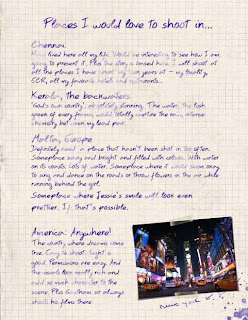 Places I would love to shoot in...
Chennai.
Have lived here all my life. Would be interesting to see how I am
going to present it. Plus the story is based here. I will shoot at
all the places I have spent my teen years at - my country,
ECR, all my favourite hotels and restaurants...
Kerala, the backwaters.
'God's own country', absolutely stunning. The water, the lush
green of every frame, would totally capture the raw, intense
chemistry between my lead pair.
Malta, Europe
Definitely need a place that hasn't been shot in too often.
Someplace sunny and bright and filled with colours. With water
on its coasts. Lots of water. Someplace where it would seem easy
to sing and dance on the roads or throw flowers in the air while
running behind the girl.
Someplace where Jessie's smile will look even
prettier. If that's possible.
America: Anywhere!
The country where dreams come
true. Easy to shoot. Light is
good. Permissions are easy. And
the visuals look really rich and
add so much character to the
scene. Plus Gautham sir always
shoots his films there.
New York